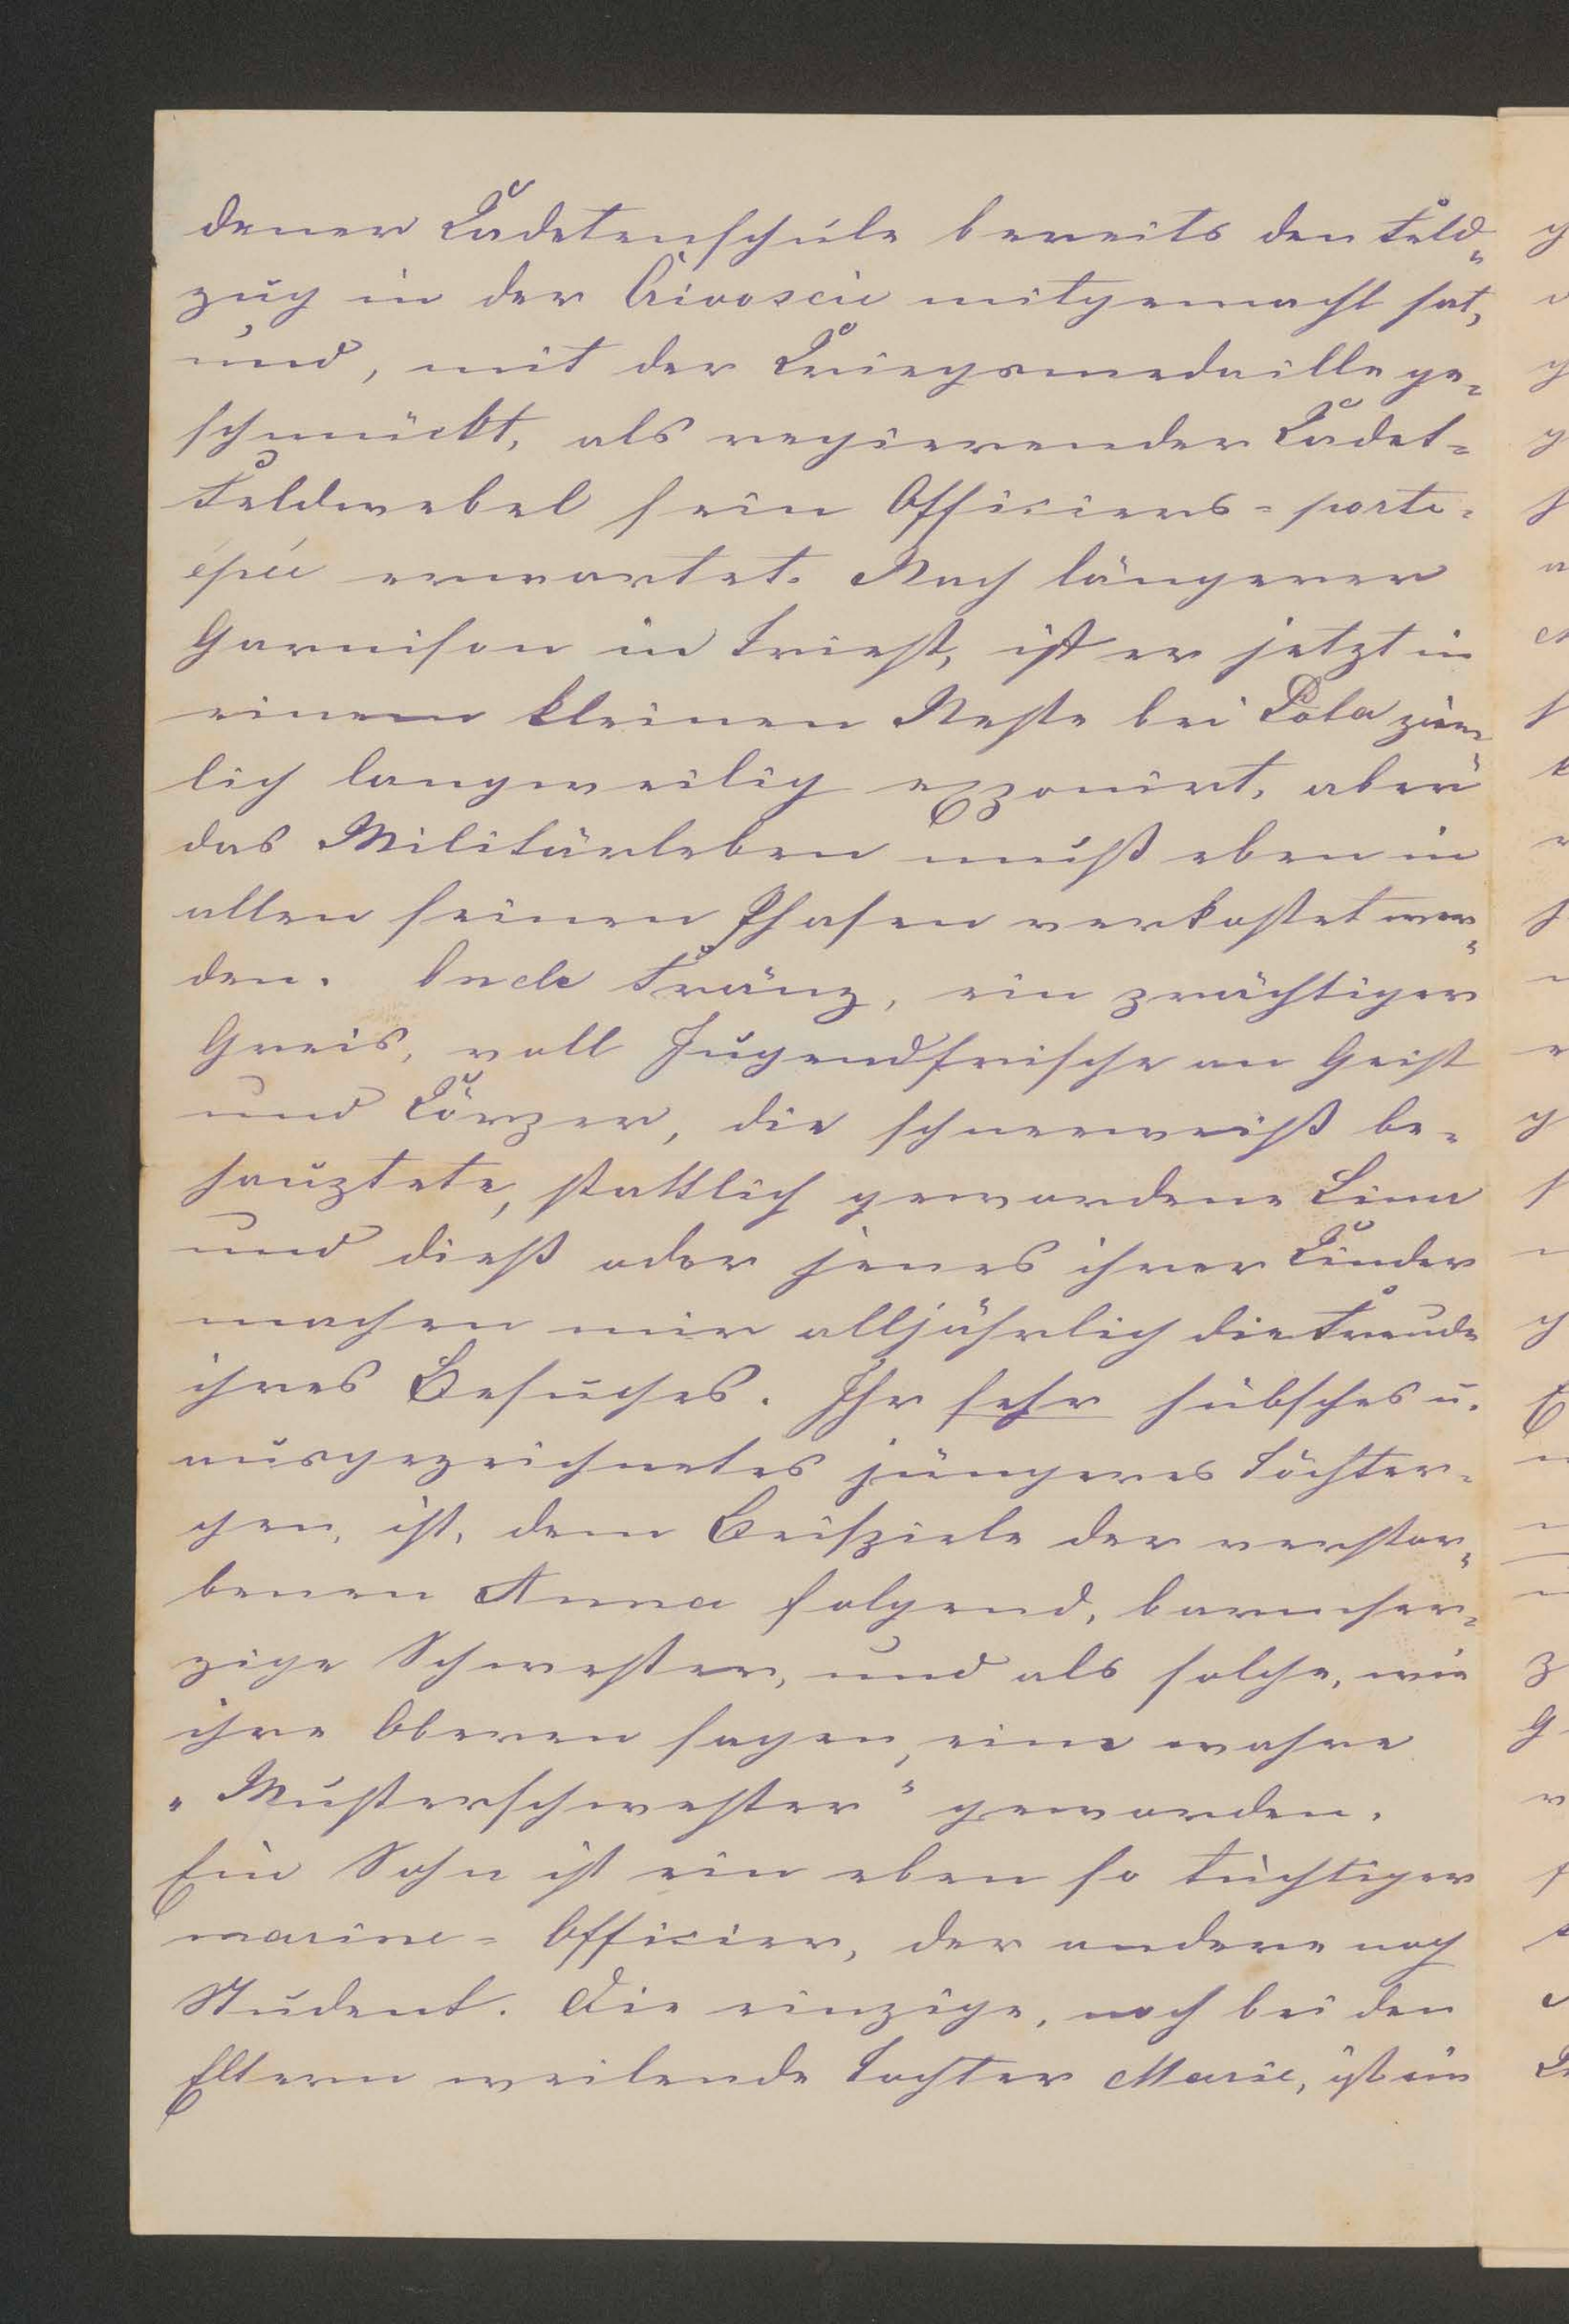 dener Kadetenschule bereits den Feld-
zug in der Crivoscie mitgemacht hat,
und, mit der Kriegsmedaille ge-
schmückt, als regierender Kadet-
Feldwebel sein Officiers-porte-
épée erwartet. Nach längerer
Garnison in Triest, ist er jetzt in
einem kleinen Neste bei Pola ziem-
lich langweilig exponirt, aber
das Militärleben muß eben in
allen seinen Phasen verkostet wer-
den. Oncle Franz, ein prächtiger
Greis, voll Jugendfrische an Geist
und Körper, die schneeweiß be-
hauptete, stattlich gewordene Lina
und dieß oder jenes ihrer Kinder
machen mir alljährlich die Freude
ihres Besuches. Ihr sehr hübsches u.
ausgezeichnetes jüngeres Töchter-
chen, ist, dem Beispiele der verstor-
benen Anna folgend, barmher-
zige Schwester, und als solche, wie
ihre Oberen sagen, eine wahre
„Musterschwester" geworden.
Ein Sohn ist ein eben so tüchtiger
marine-Officier, der andere noch
Student. Die einzige, noch bei den
Eltern weilende Tochter Marie, ist ein